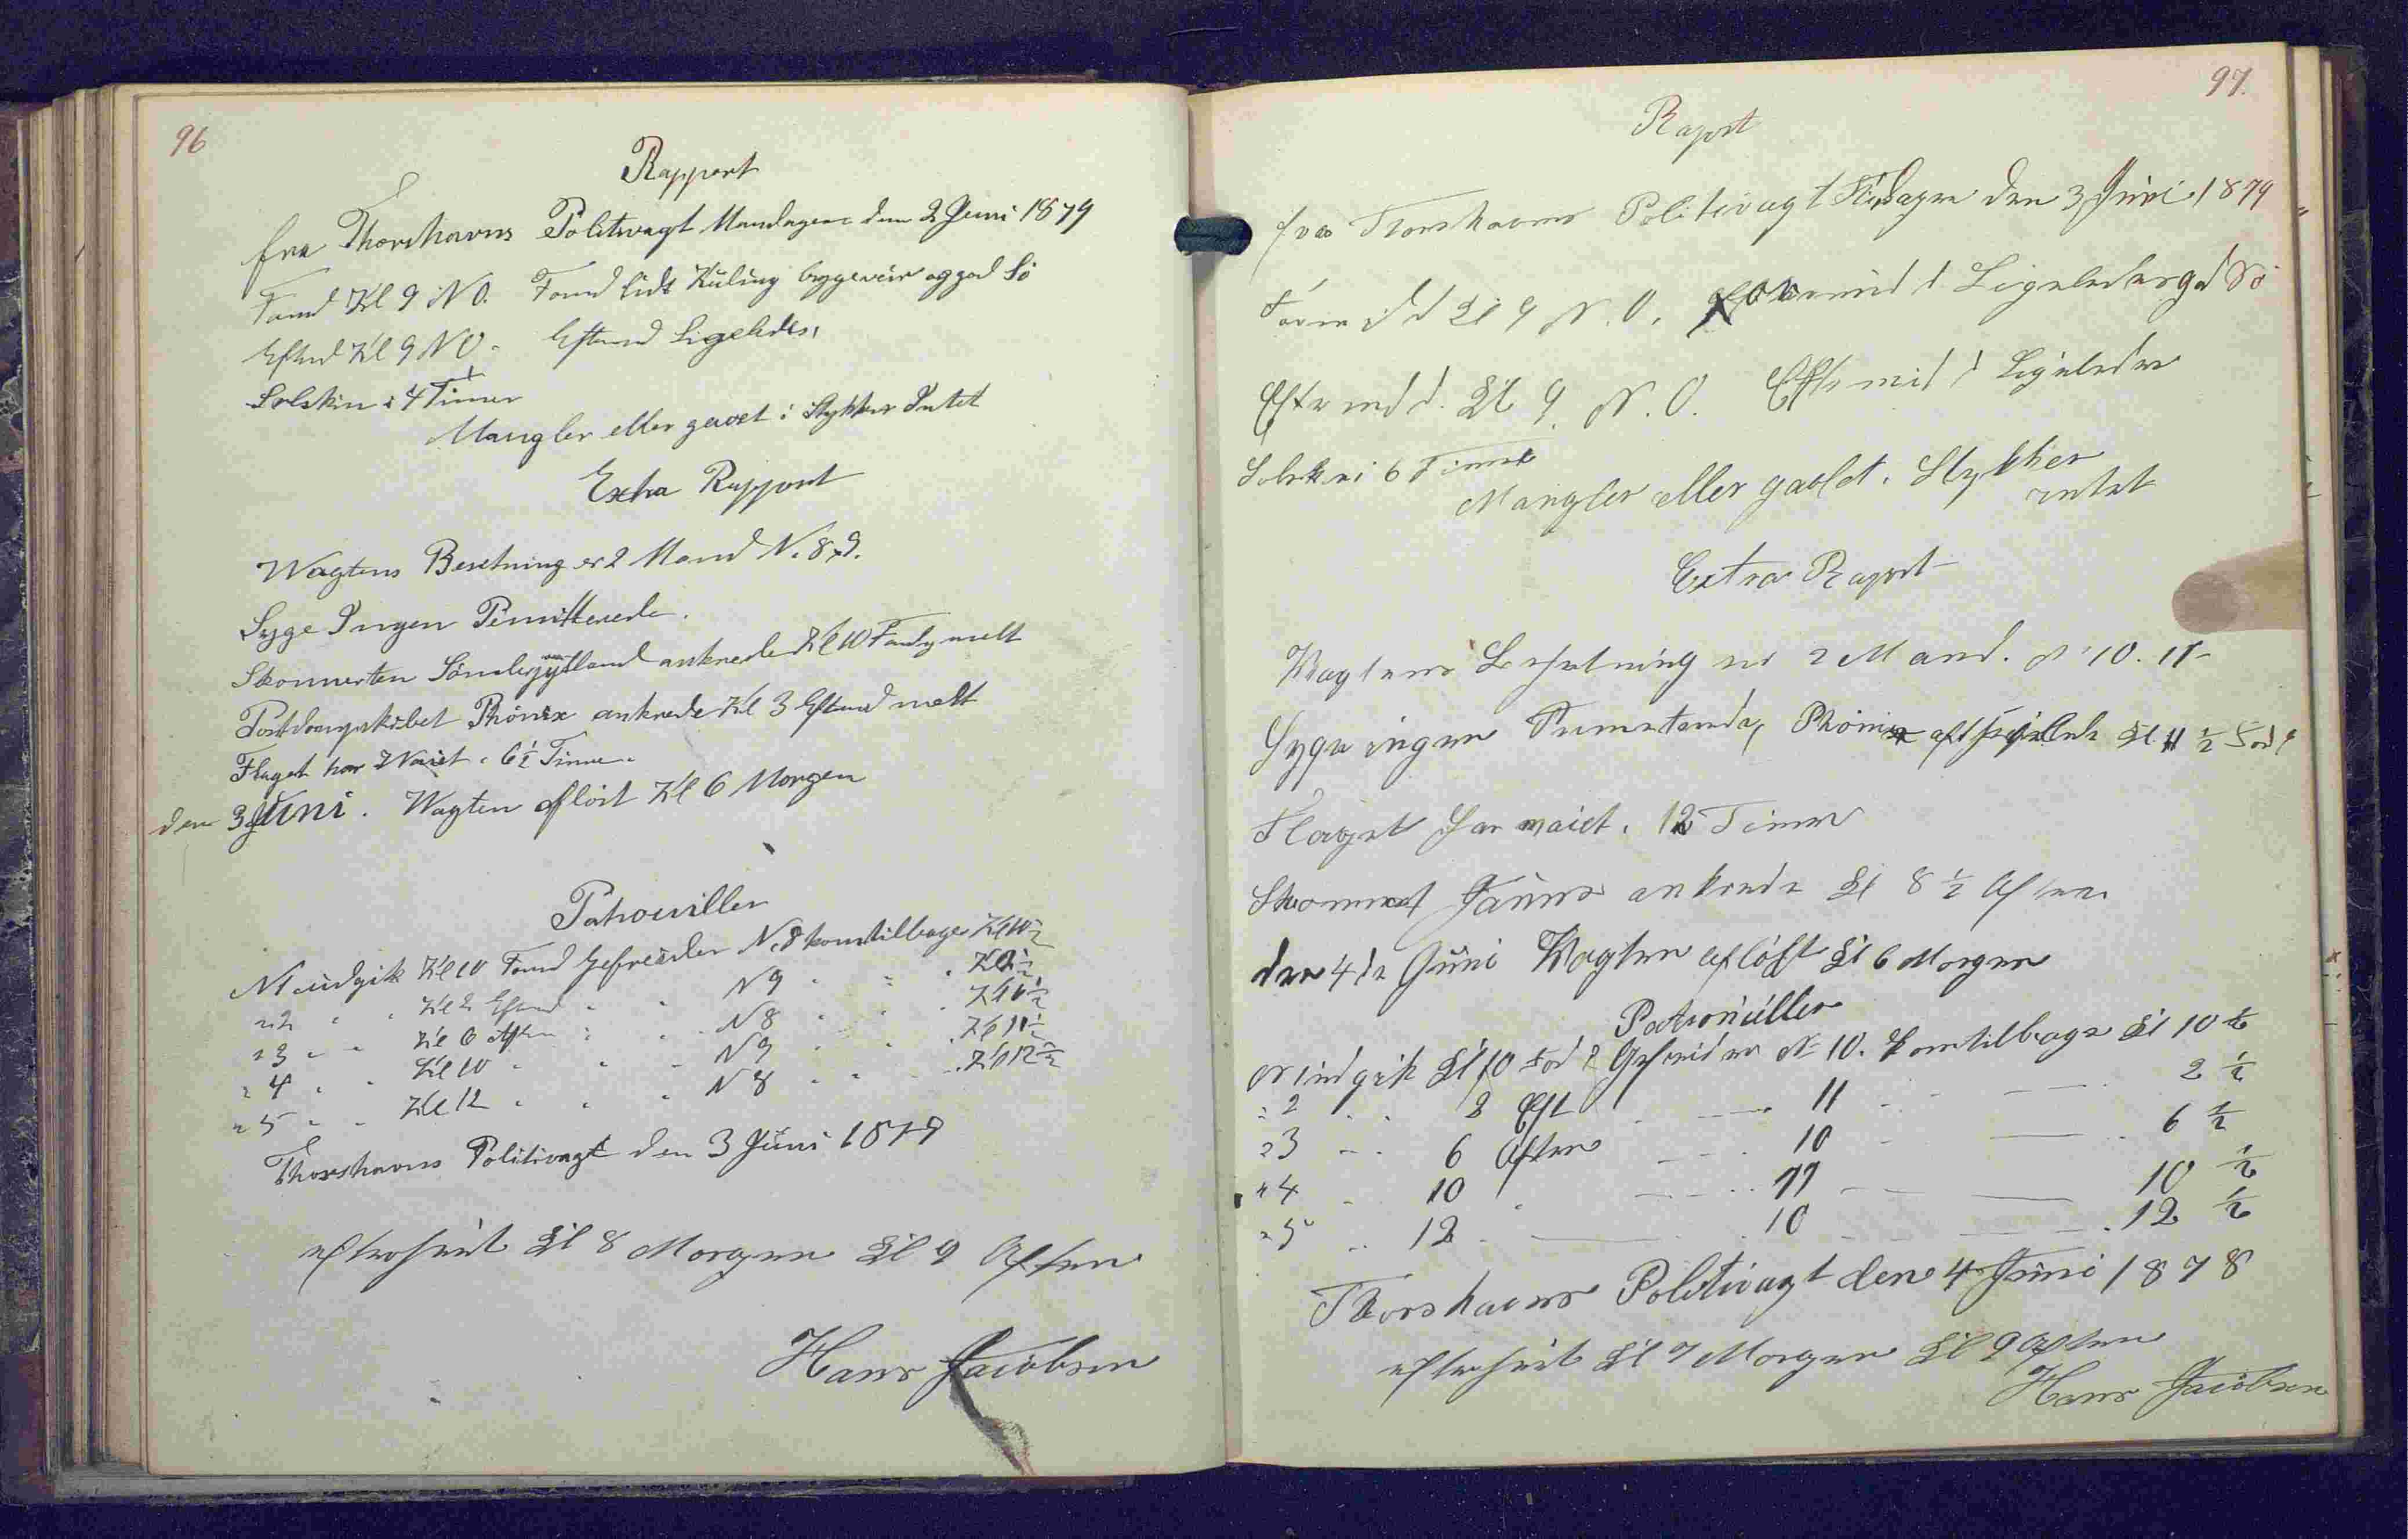 96
Rapport
fra Thorshavns Politivagt Mandagen den 2 Juni 1879
Formd Kl 9 NO. Formd lidt Kuling byggeveir og god Sö
Eftmd Kl 9 NO. Eftmd Ligeledes,
Solskin i 4 Timer
Mangler eller gaaet i Stykker Intet
Extra Rapport
Wagtens Besetning er 2 Mand N. 8, 9.
Syge Ingen Permitterede.
Skonnerten Sönderjylland ankrede Kl 10 Formd melt
Postdampskibet Phönix ankrede Kl 3 Eftmd melt
Flaget har Waiet i 6½ Time.
den 3 Juni. Wagten aflöst Kl 6 Morgen
Patrouiller
N 1 udgik Kl 10 Formd Gefreider N. 8 kom tilbage Kl 10½
" 2 " " Kl 2 Eftmd " " N 9 " " " Kl 2½
" 3 " " Kl 6 Aften " " N 8 " " " Kl 6½
" 4 " " Kl 10 " " " N 9 " " " Kl 11½
" 5 " " Kl 12 " " " N 8 " " " Kl 12½
Thorshavns Politivagt den 3 Juni 1879
efterseet Kl 8 Morgen Kl 9 Aften
Hans Jacobsen
97.
Raport
fra Thorshavns Politivagt Tirsdagen den 3 Juni 1879
Formidd Kl 9 N. O. Formidd Ligeledes god Sö
Eftermidd. Kl 9. N. O. Eftermidd Ligeledes
Solskin i 6 Timer
Mangler eller gaaet i Stykker
intet
Extra Raport
Wagtens Besetning er 2 Mand. N 10. 11
Syge ingen Permiterede, Phönix afseilede Kl 11½ Fod
Flaget har vaiet i 12 Timer
Skonnert ankrede Kl 8½ Aften
den 4de Juni Wagten aflöst Kl 6 Morgen
Patrouiller
N 1 udgik Kl 10 Fod Gefreider N 10. kom tilbage Kl 10½
" 2 " " 2 Eft " " 11 " " 2½
" 3 " " 6 Aften " " 10 " " 6½
" 4 " " 10 " " 11 " " 10½
" 5 " " 12 " " 10 " " 12½
Thorshavns Politivagt den 4 Juni 1878
efterseet Kl 7 Morgen Kl 9 Aften
Hans Jacobsen